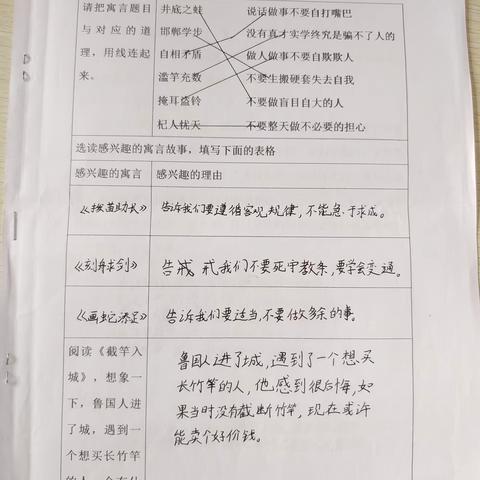 请把寓言题目
与对应的道
理，用线连起
来。
井底之蛙 说话做事不要自打嘴巴
邯郸学步 没有真才实学终究是骗不了人的
自相矛盾 做人做事不要自欺欺人
滥竽充数 不要生搬硬套失去自我
掩耳盗铃 不要做盲目自大的人
杞人忧天 不要整天做不必要的担心
选读感兴趣的寓言故事，填写下面的表格
感兴趣的寓言 感兴趣的理由
《揠苗助长》 告诉我们要遵循客观规律，不能急于求成。
《刻舟求剑》 告戒 戒我们不要死守教条，要学会变通。
《画蛇添足》 告诉我们要适当，不要做多余的事。
阅读《截竿入
城》，想象一
下，鲁国人进
了城，遇到一
个想买长竹竿
鲁国人进了城，遇到了一个想买
长竹竿的人，他感到很后悔，如
果当时没有截断竹竿，现在或许
能卖个好价钱。